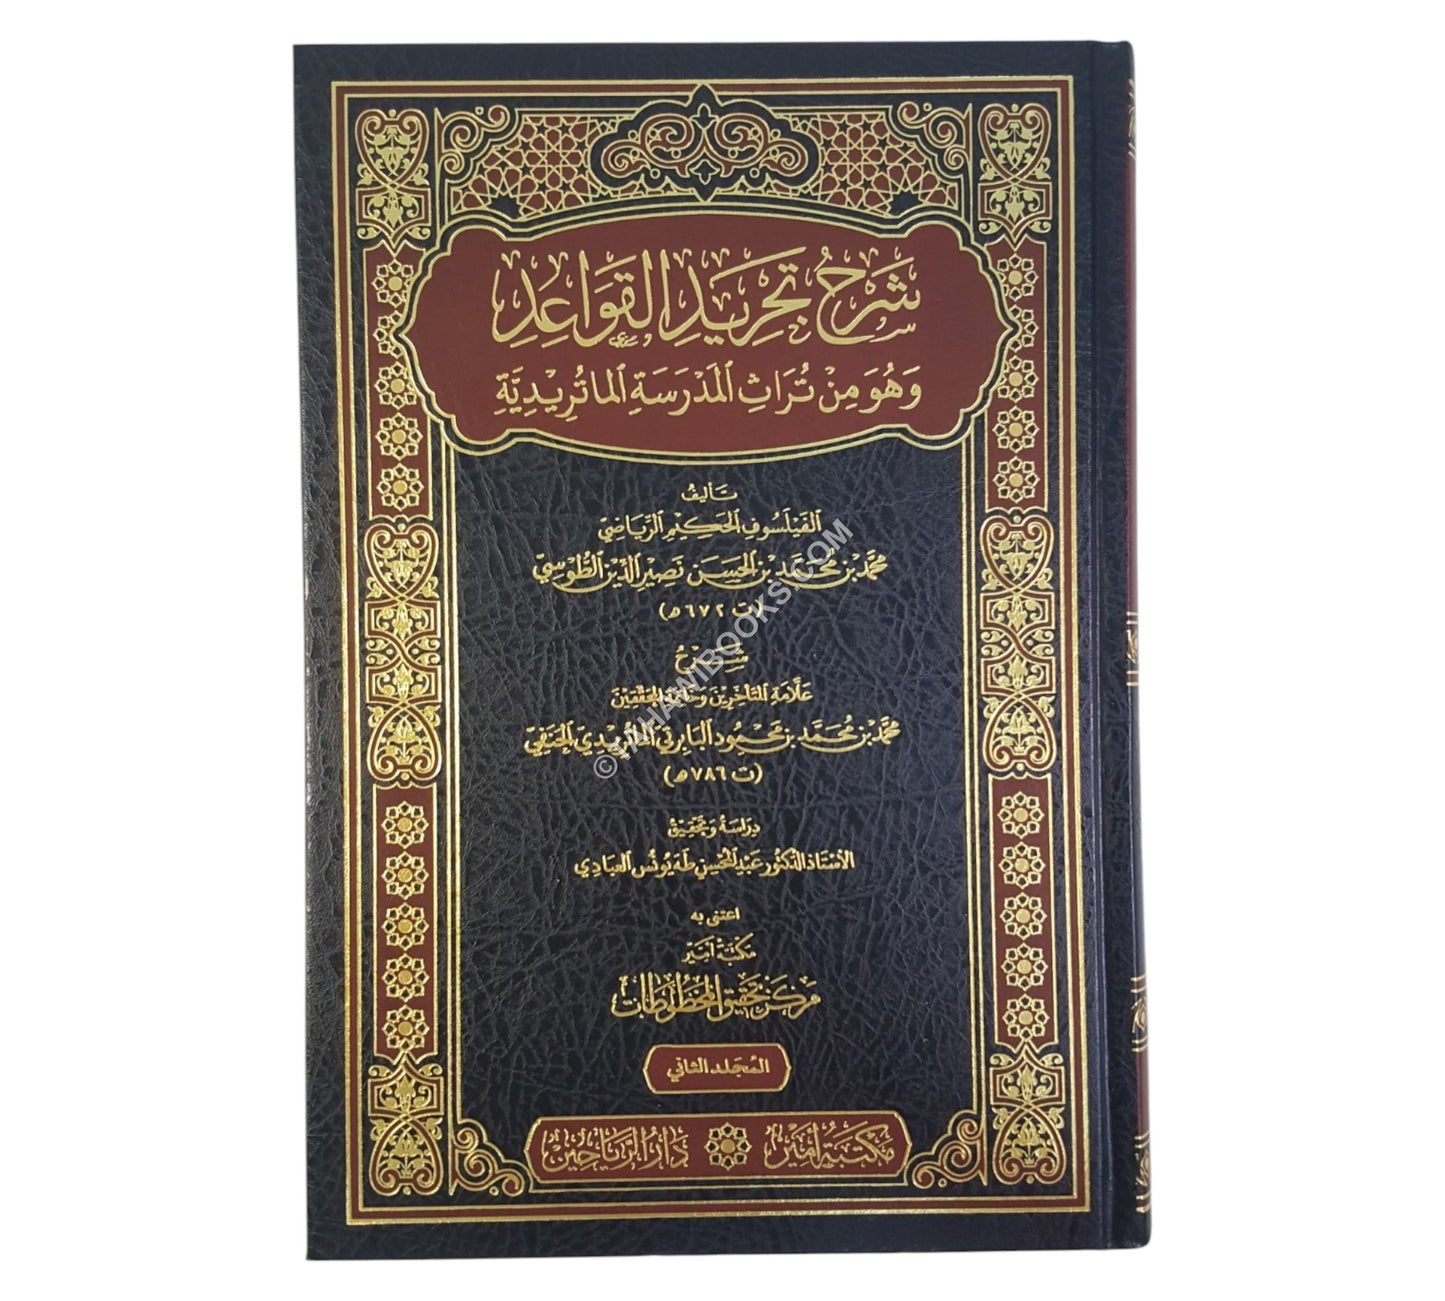 شَرْحُ تَجْرِيدِ القَوَاعِدِ
وَهُوَ مِنْ تُرَاثِ المَدْرَسَةِ الماتُرِيْدِيَّةِ
تأليفُ
الفَيْلَسُوفِ الحَكِيْمِ الرِّيَاضِيِّ
مُحَمَّد بْن مُحَمَّد بن الحَسَن نَصِيْرِ الدِّيْنِ الطُّوْسِيِّ
(ت ٦٧٢ هـ)
شَرْحُ
عَلَّامَةِ المتَأخِّرِيْنَ وَخَاتمَةِ المُحَقِّقِيْنَ
مُحَمَّد بْن مُحَمَّد بن مَحْمُود البَابِرتيِّ الماتُرِيْدِيِّ الحَنَفِيِّ
(ت ٧٨٦ هـ)
دِرَاسَةُ وَتَحْقِيْقُ
الأسْتَاذ الدّكْتُور عَبْدالمُحْسِن طَه يُونُس العبَادِي
اعتنى به
مَكْتَبَة أمِيْر
مَركَز تَحْقِيْق المَخْطُوطَات
المُجَلد الثاني
مَكْتَبَة أمِيْر دَارُ الرَّيَاحِيْن
© TAHAWIBOOKS.COM